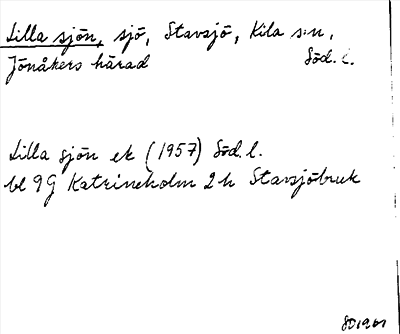 Lilla sjön, sjö, Stavsjö, Kila s:n,
Jönåkers härad Söd. l.
Lilla sjön ek (1957) Söd. l.
bl 9G Katrineholm 2h Stavsjöbruk